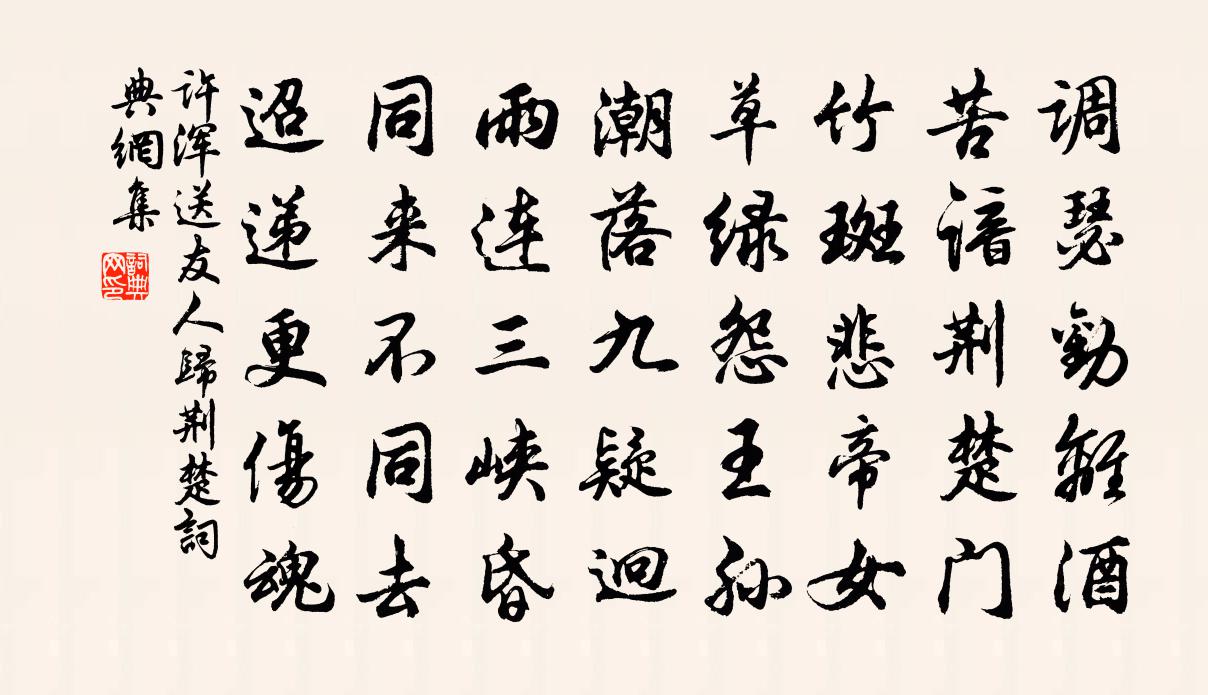 调瑟勸離酒
苦谙荆楚门
竹斑悲帝女
草绿怨王孙
潮落九疑迥
雨连三峡昏
同来不同去
迢递更傷魂
许浑送友人歸荆楚詞
典網集
詞典网印